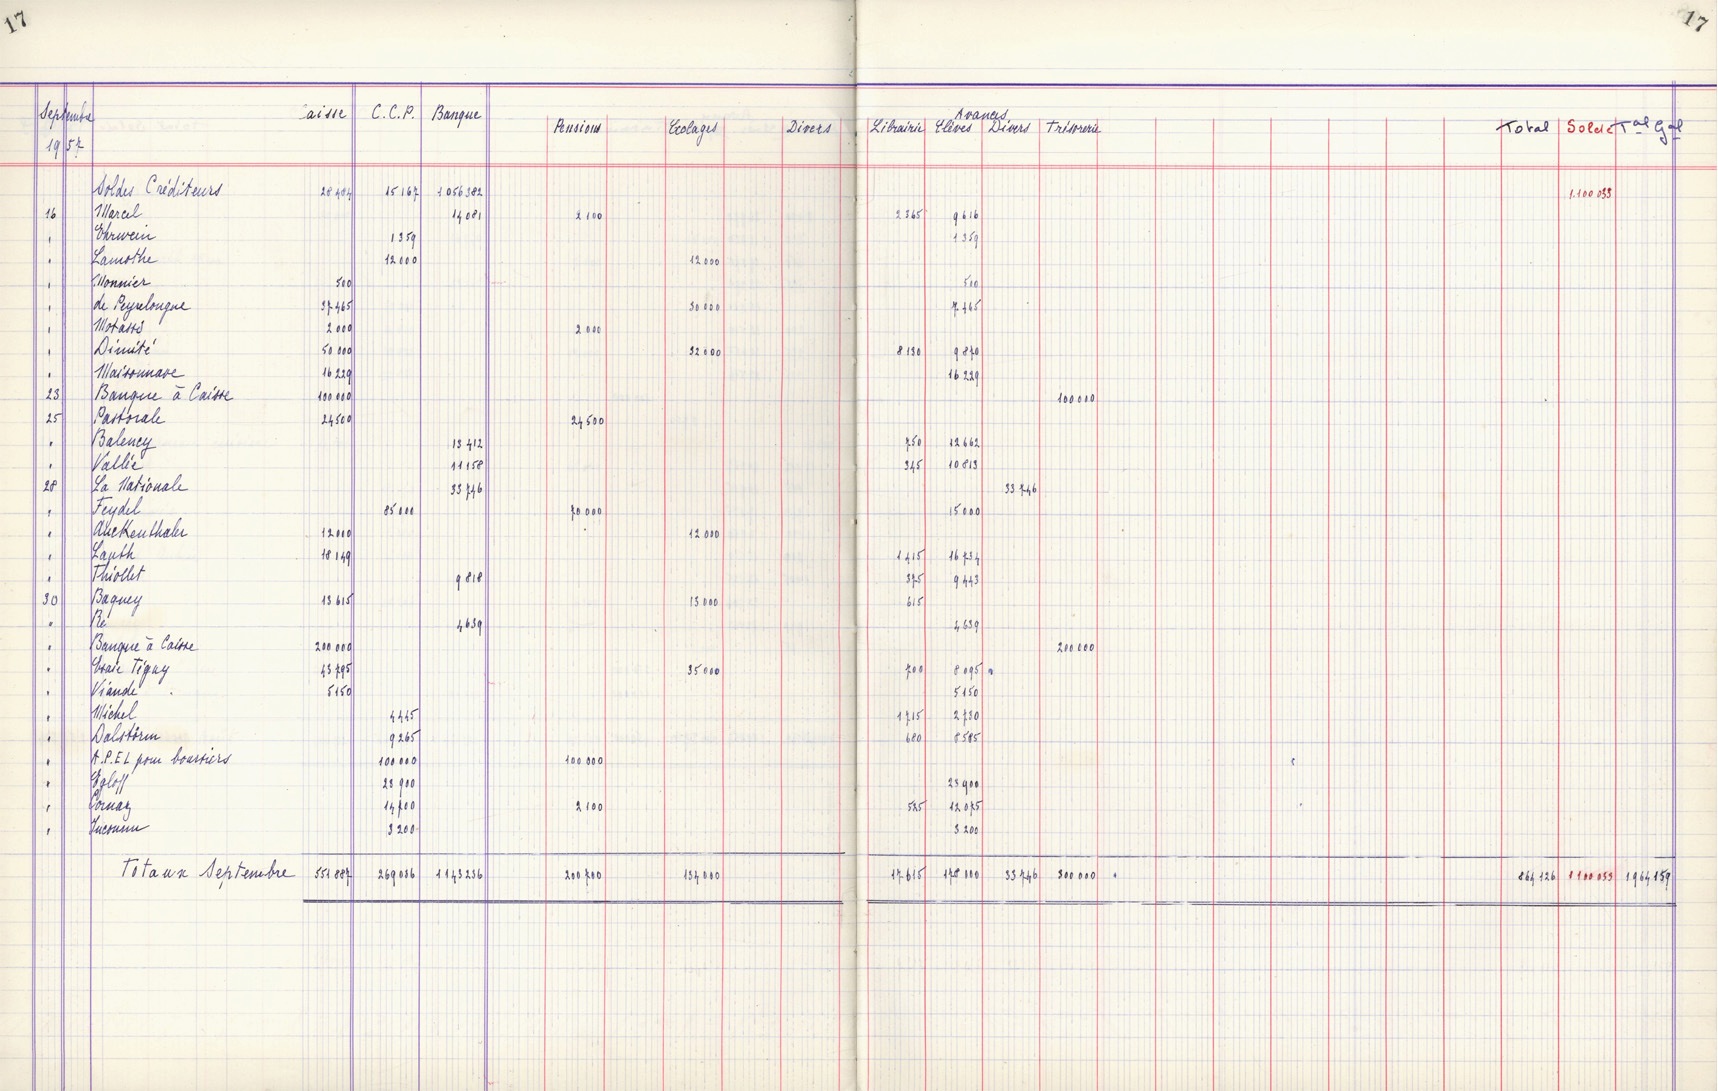 17 17
Septembre Caisse C.C.P. Banque Avances
1957 Pensions Ecolages Divers Librairie Elèves Divers Trésorerie Total Solde Tal Gal
Soldes Créditeurs 28 484 15 167 1 056 382 1.100 033
16 Marcel 14 081 2 100 2 365 9 616
" Ehrwein 1 359 1 359
" Lamothe 12 000 12 000
" Monnier 500 500
" de Peyrelongue 37 465 30 000 7 465
" 2 000 2 000
" Dimité 50 000 32 000 8 130 9 870
" Maisonnave 16 229 16 229
23 Banque à Caisse 100 000 100 000
25 Pastorale 24 500 24 500
" Balency 13 412 750 12 662
" Vallée 11 158 345 10 813
28 La Nationale 33 746 33 746
" Feydel 85 000 70 000 15 000
" 12 000 12 000
" Lauth 18 149 1 415 16 734
" Thiollet 9 818 375 9 443
30 Baguey 13 615 13 000 615
" Ré 4 639 4 639
" Banque à Caisse 200 000 200 000
" Tiguy 43 795 35 000 700 8 095
" Viande 5 150 5 150
" Michel 4 445 1 715 2 730
" Dalstörm 9 265 680 8 585
" A.P.E.L pour boursiers 100 000 100 000
" Egloff 23 900 23 900
" Cornaz 14 700 2 100 525 12 075
" Inconnu 3 200 3 200
Totaux Septembre 551 887 269 036 1 143 236 200 700 134 000 17 615 178 000 33 746 300 000 864 126 1 100 033 1 964 159